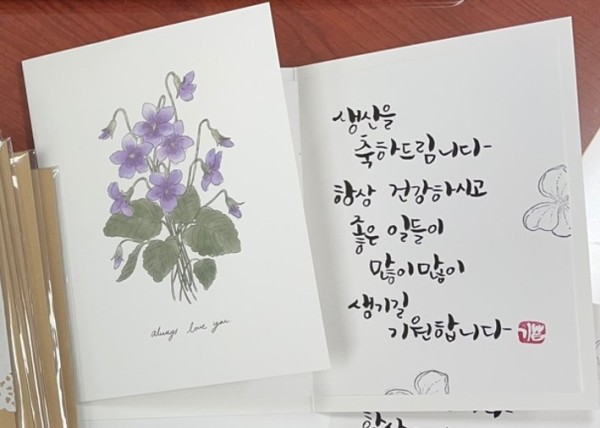 always love you
생신을
축하드립니다
항상 건강하시고
좋은 일들이
많이많이
생기길
기원합니다
기쁨
항상